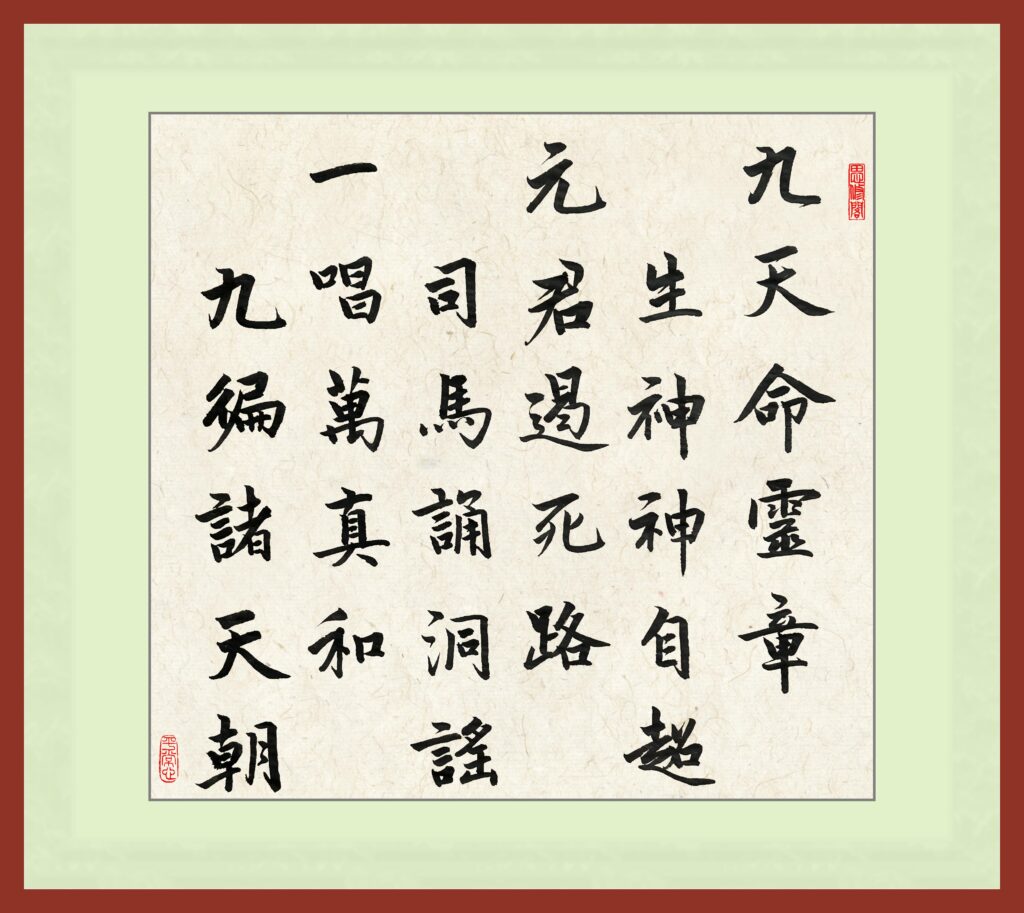 思修閣
九天命靈章
生神神自超
元君遏死路
司馬誦洞謠
一唱萬真和
九徧諸天朝
平常心